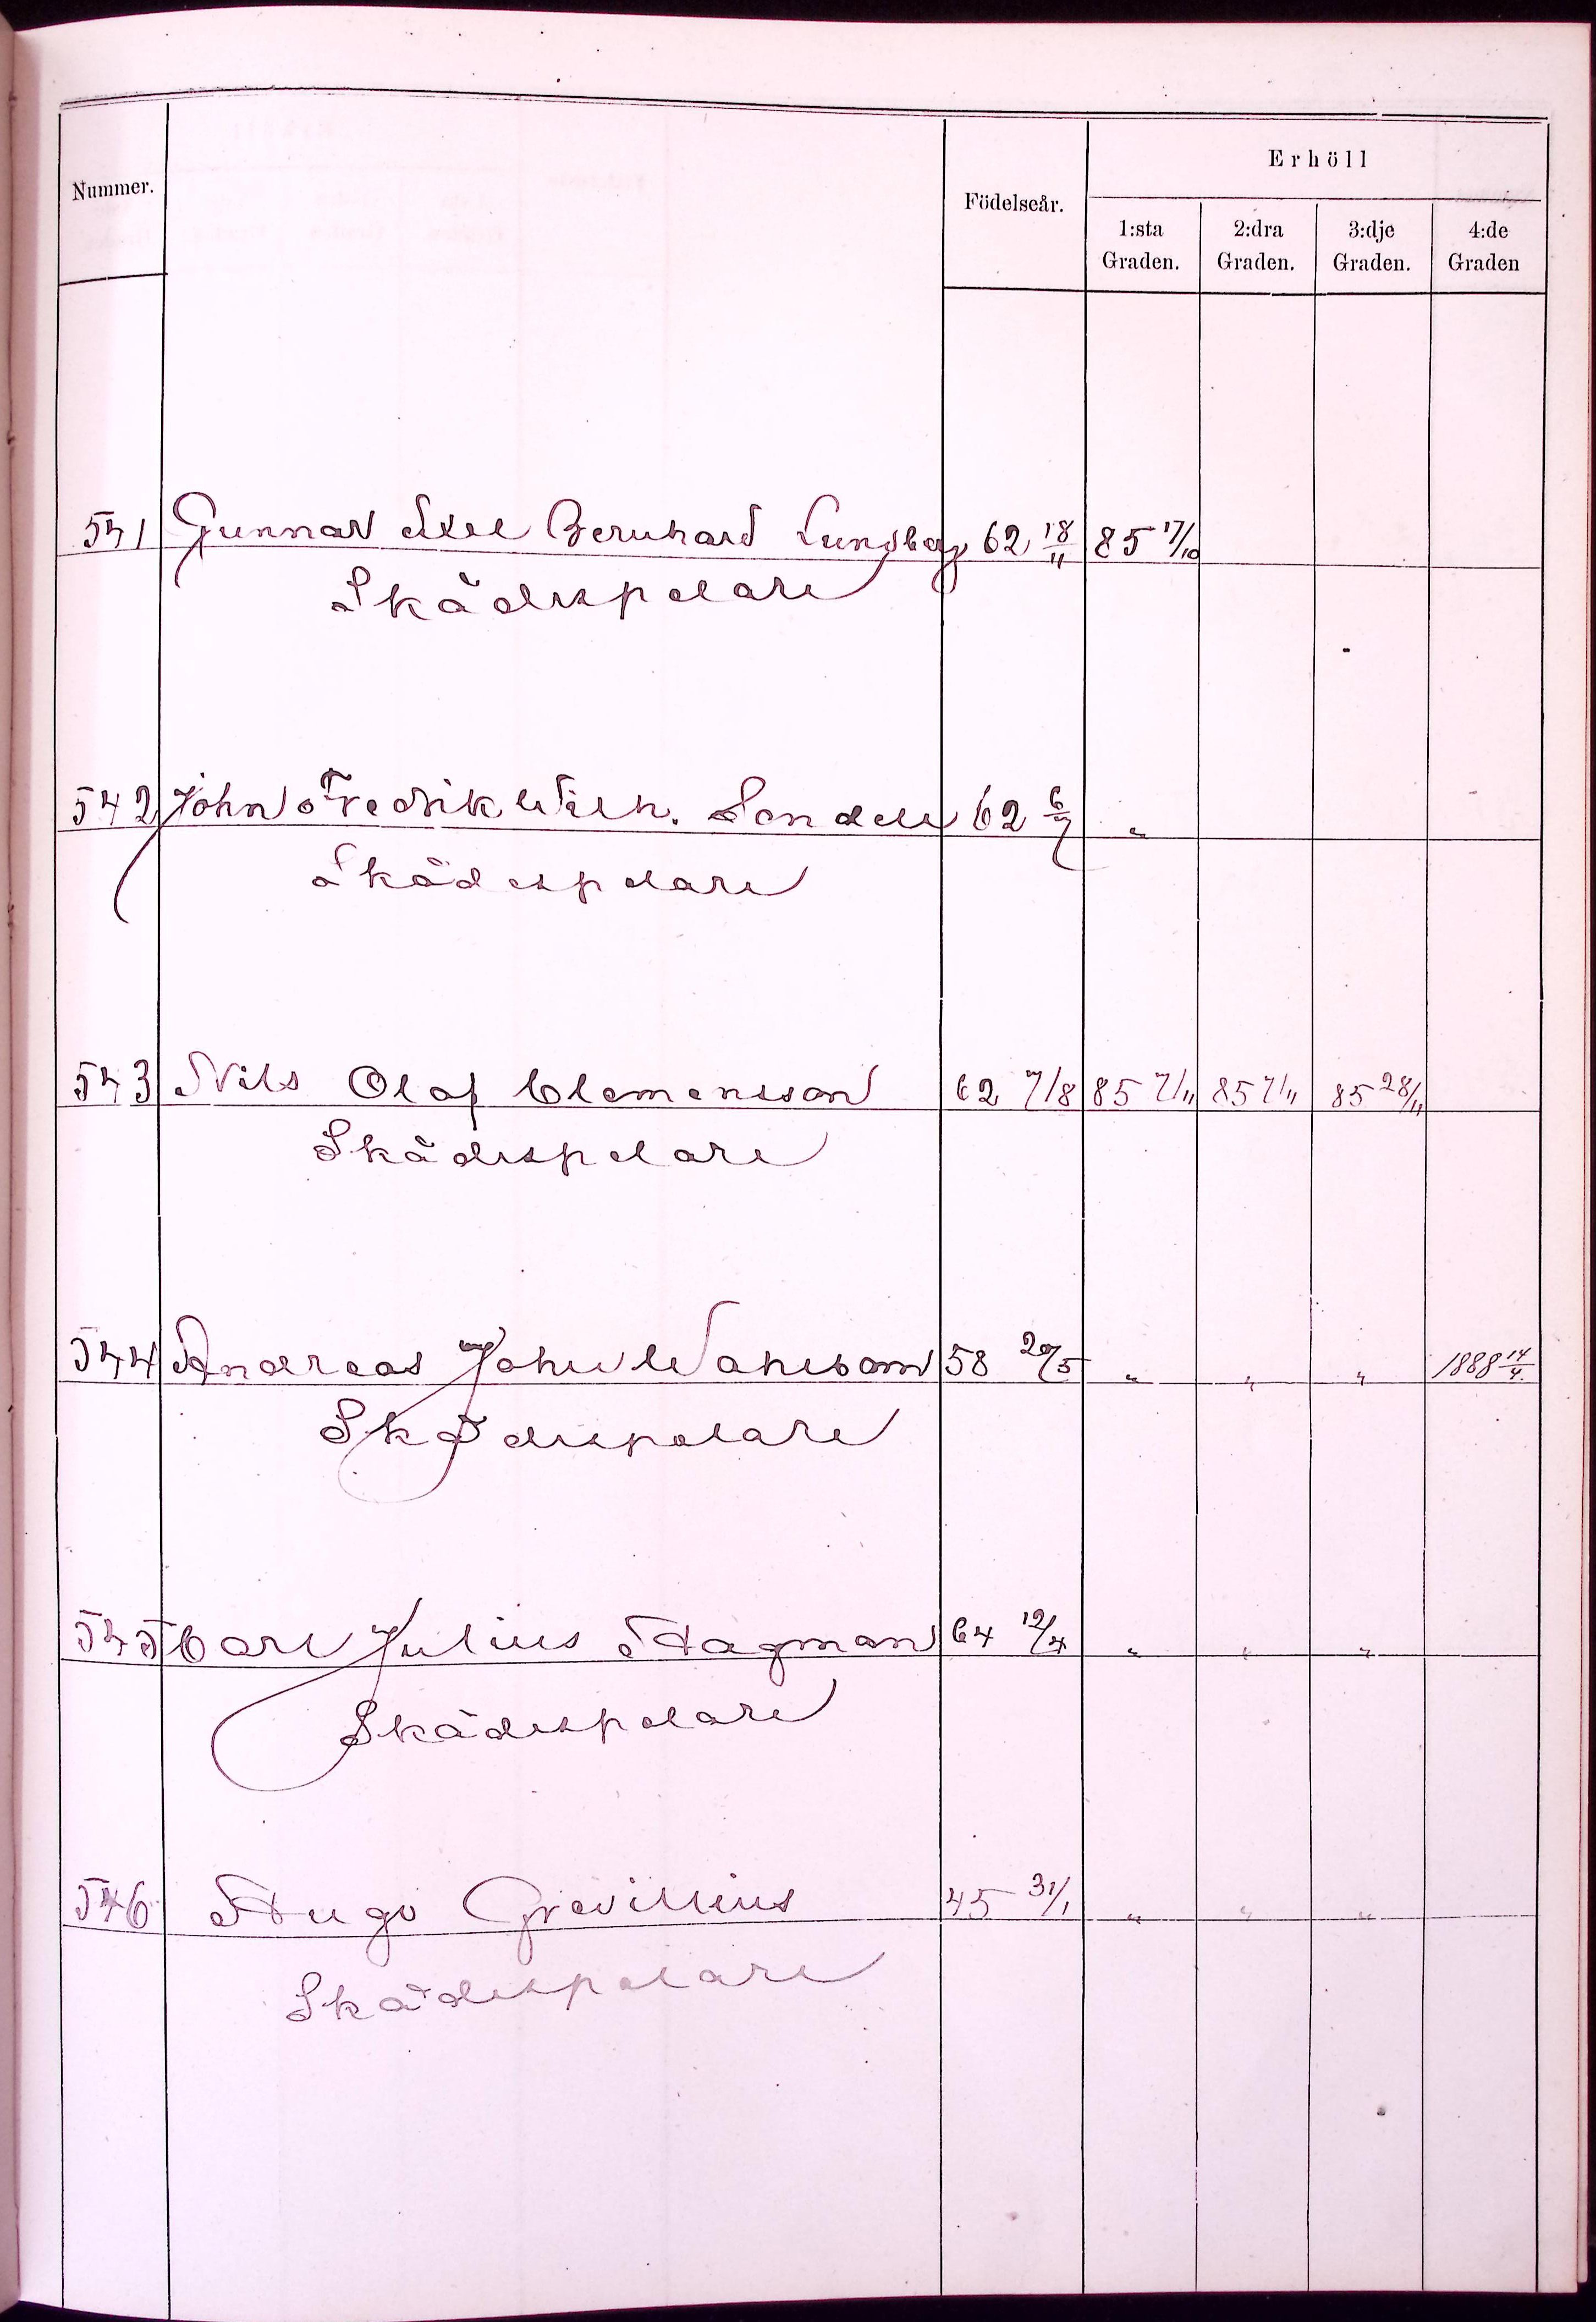 Nummer. Födelseår. Erhöll
1:sta Graden. 2:dra Graden. 3:dje Graden. 4:de Graden
541 Gunnar Axel Bernhard Lundberg 62 18/11 85 17/10
Skådespelare
542 John Fredrik Wilh. Sandell 62 6/7 "
Skådespelare
543 Nils Olof Clemensson 62 7/8 85 7/11 85 7/11 85 28/11
Skådespelare
544 Andreas John Wahlbom 58 20/5 " " " 1888 14/4.
Skådespelare
545 Carl Julius Hagman 64 12/4 " " "
Skådespelare
546 Hugo Grevillius 45 31/1 " " "
Skådespelare